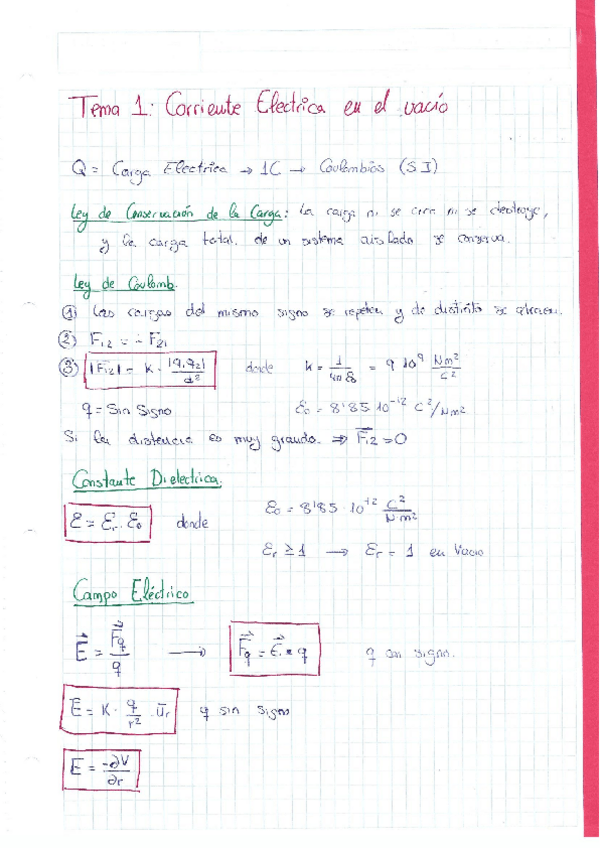 Tema 1: Corriente Electrica en el vacío
Q = Carga Electrica → 1C → Coulombios (SI)
Ley de Conservación de la Carga: La carga ni se crea ni se destruye,
y la carga total de un sistema aislado se conserva.
Ley de Coulomb.
① Las cargas del mismo signo se repelen y de distinto se atraen.
② F₁₂ = - F₂₁
③ |F₁₂| = K · |q₁q₂|/d² donde K = 1/4πε = 9 10⁹ Nm²/C²
q = Sin Signo ε₀ = 8'85 10⁻¹² C²/Nm²
Si la distancia es muy grande ⇒ F₁₂ = 0
Constante Dielectrica.
ε = εr · ε₀ donde ε₀ = 8'85 · 10⁻¹² C²/Nm²
εr ≥ 1 → εr = 1 en vacio
Campo Eléctrico
E⃗ = F⃗q/q → F⃗q = E⃗ · q q con signo.
E = K · q/r² · ūr q sin signo
E = -∂V/∂r